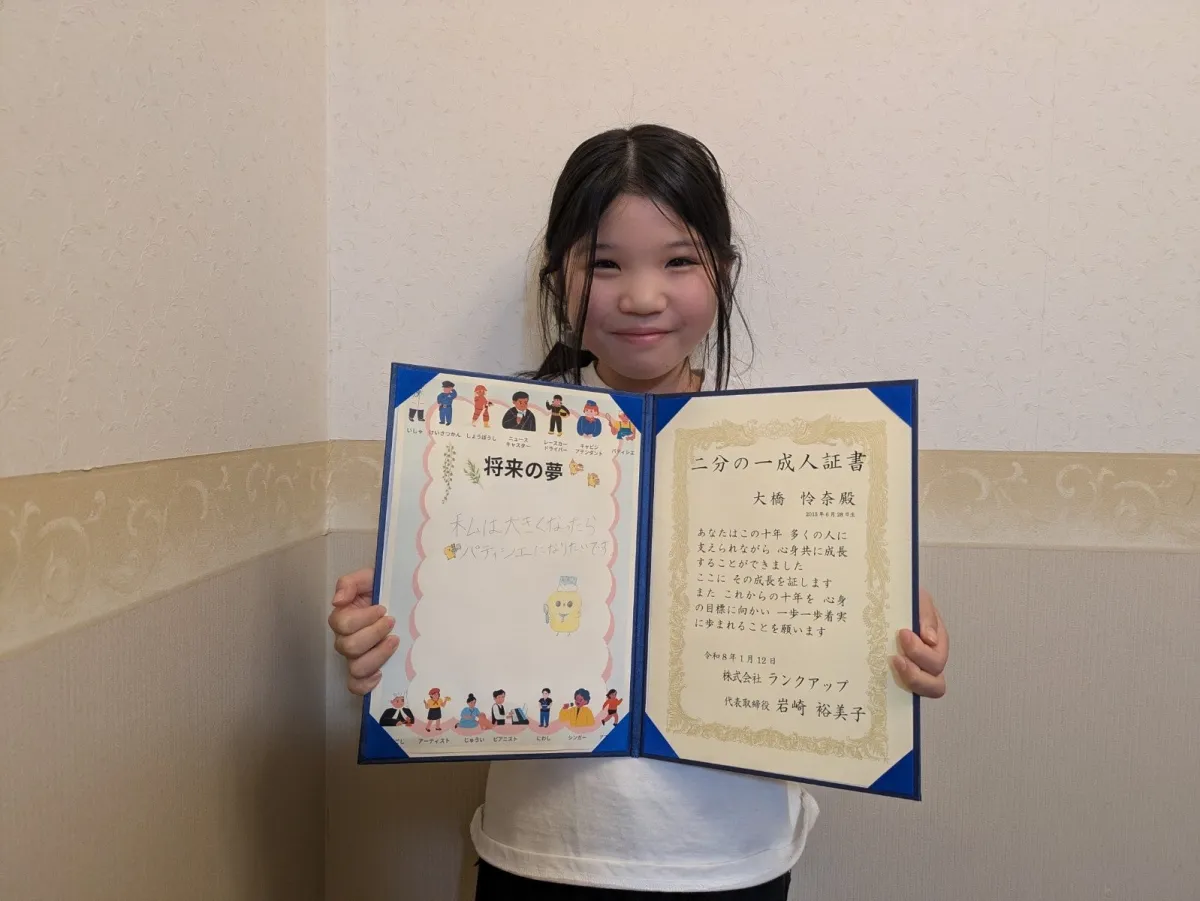 いしゃ けいさつかん しょうぼうし ニュースキャスター レースカードライバー キャビンアテンダント パティシエ
将来の夢
私は大きくなったら
パティシエになりたいです
アーティスト じゅうい ピアニスト しかし シンガー
二分の一成人証書
大橋 怜奈殿
あなたはこの十年 多くの人に
支えられながら 心身共に成長
することができました
ここに その成長を証します
また これからの十年を 心身
の目標に向かい 一歩一歩着実
に歩まれることを願います
令和8年1月12日
株式会社 ランクアップ
代表取締役 岩崎 裕美子